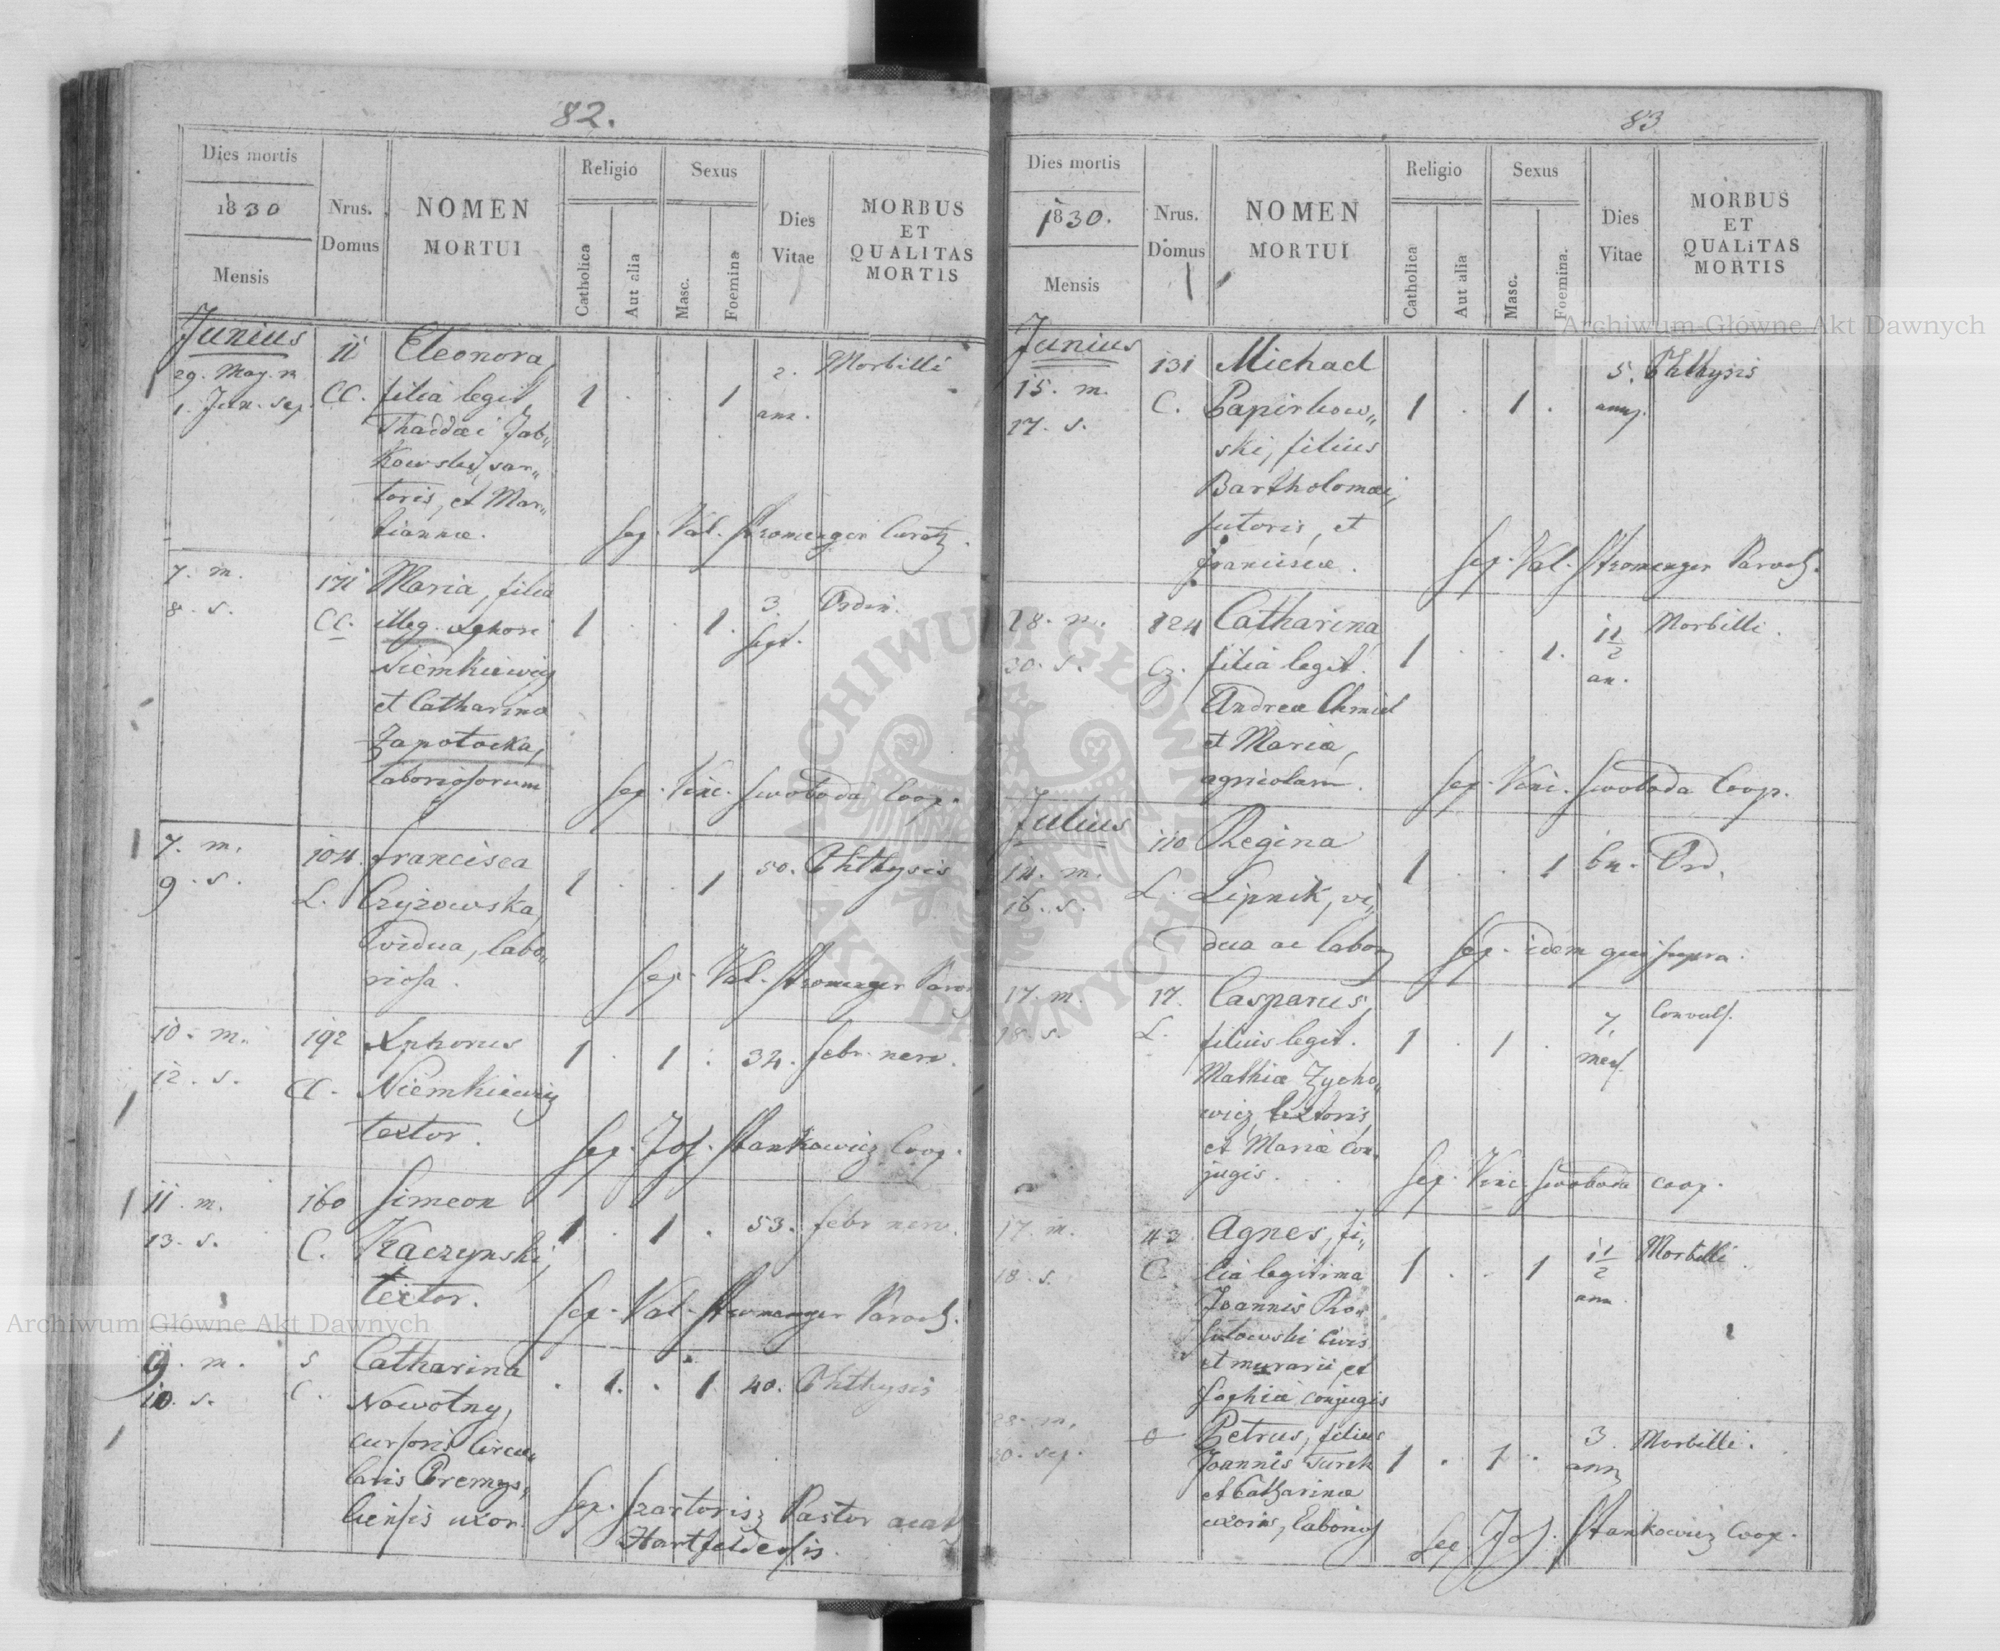 82.
Dies mortis
1830
Mensis
Nrus.
Domus
NOMEN
MORTUI
Religio
Catholica
Aut alia
Sexus
Masc.
Foemina
Dies
Vitae
MORBUS
ET
QUALITAS
MORTIS
Junius
29. May. m
1. Jun. sep.
11
CC.
Eleonora,
filia legit.
Thaddæi Jab„
kowski, sar„
toris, et Mar„
iannæ.
1 . . 1
2.
ann.
Morbilli
Sep. Val. Stromenger Curat.
7. m.
8. s.
171
CC.
Maria, filia
illeg. Xphori
Niemkiewicz
et Catharinæ
Zapotocka,
laboriosorum
1 . . 1.
3.
sept.
Ordin.
Sep. Vinc. Swoboda Coop.
7. m.
9. s.
104.
L.
Francisca
Czyzowska,
vidua, labo„
riosa.
1 . . 1
50.
Phthysis
Sep. Val. Stromenger Paro
10. m.
12. s.
192
CC.
Xphorus
Niemkiewicz
textor.
1 . 1 .
34.
febr. nerv.
Sep. Jos. Stankowicz Coop.
11. m.
13. s.
160
C.
Simeon
Kaczynski,
textor.
1 . 1 .
53.
febr nerv.
Sep. Val. Stromenger Paroch.
9. m.
10. s.
5
C.
Catharina
Nowotny,
cursoris Circu„
laris Premys„
liensis uxor.
. 1. . 1
40.
Phthysis
Sep. Szartorisz Pastor
Hartfeldensis.
83
Dies mortis
1830.
Mensis
Nrus.
Domus
NOMEN
MORTUI
Religio
Catholica
Aut alia
Sexus
Masc.
Foemina.
Dies
Vitae
MORBUS
ET
QUALITAS
MORTIS
Junius
15. m.
17. s.
131
C.
Michael
Papirkow„
ski, filius
Bartholomæi,
sutoris, et
Franciscæ.
1 . 1 .
5.
ann.
Phthysis
Sep. Val. Stromenger Paroch.
28. m.
30. s.
124
Cz.
Catharina
filia legit.
Andreæ Chmiel
et Mariæ,
agricolarum.
1 . . 1.
1 1/2
an.
Morbilli.
Sep. Vinc. Swoboda Coop.
Julius
14. m.
16. s.
110
L.
Regina
Lipnik, vi„
dua ac labor
1 . . 1
60.
Ord.
Sep. idem qui supra.
17. m.
18. s.
17.
L.
Casparus,
filius legit.
Mathiæ Zycho„
wicz, textoris,
et Mariæ con„
jugis.
1 . 1 .
7.
mens.
Convuls.
Sep. Vinc. Swoboda coop.
17. m.
18. s.
43
C.
Agnes, fi„
lia legitima
Joannis Ro„
sulowski civis
et murarii, et
Sophiæ conjugis
1 . . 1
1 1/2
ann
Morbilli
28. m.
30. sep.
0
Petrus, filius
Joannis Turek
et Catharinæ
uxoris, laborios
1 . 1 .
3.
ann
Morbilli.
Sep. Jos. Stankowicz Coop.
Archiwum Główne Akt Dawnych
Archiwum Główne Akt Dawnych
ARCHIWUM GŁÓWNE AKT DAWNYCH